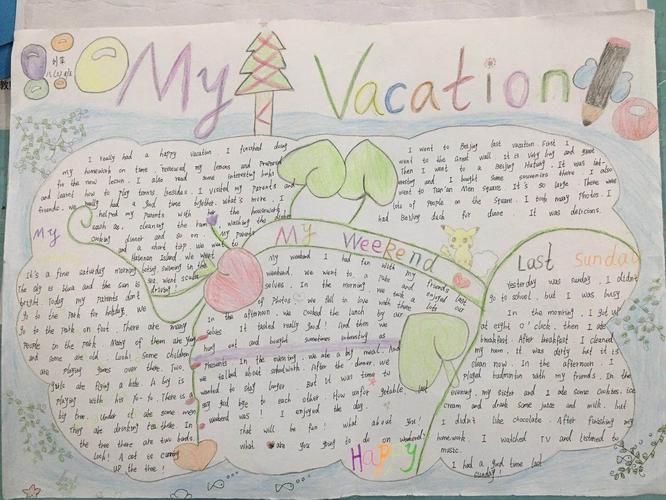 My Vacation
I really had a happy vacation. I finished doing
my homework on time, reviewed my lessons and prepared
for the new lesson. I also read some interesting books
and learnt how to play tennis besides. I visited my parents and
friends. We really had a good time together. What's more, I
helped my parents with the housework
such as cleaning the washing the
cooking dinner and so on. My parents
and a short trip. We went to
Hainan Island. We went
swimming in the
sea, went scuba
driving!
I went to Beijing last vacation. First I
went to the Great wall. It is very big and great
Then I went to a Beijing Hutong. It was int-
eresting and I bought some souvenirs there. I also
went to Tian'an Men square. It's so large. There were
lots of people on the Square. I took many photos. I
had Beijing duck for dinner. It was delicious.
My
It's a fine saturday morning
The sky is blue and the sun is
bright. Today my parents don't
go to the park for holiday. We
go to the park on foot. There are many
people in the park. Many of them are young
and some are old. Look! Some children
are playing games over there. Two
girls are flying a kite. A big is
playing with his yo-yo. There is a
big tree. Under it are some men
They are drinking tea there. In
the tree there are two birds.
Look! A cat is coming
up the tree!
My Weekend
My weekend I had fun with my friends last
weekend. We went to a park and enjoyed our
selves. In the morning, we took a lots
of photos. We fell in love with there
In the afternoon, we cooked the lunch by our
selves. It tasted really good! And then we
hung out and bought somethings interesting as
presents. In the evening, we ate a big meal. And
we talked about schoolwork. After the dinner, we
wanted to stay longer. But it was time to
say good bye to each other. How unforgetable last
weekend was! I enjoyed the day!
That will be fun! What about you!
What are you going to do on weekend?
Happy
Last sunday
Yesterday was sunday. I didn't
go to school. but I was busy
In the morning, I got up
at eight o'clock. then I ate
breakfast. After breakfast I cleaned
my room. It was dirty but it is
clean now. In the afternoon, I
played badminton with my friends. In the
evening, my sister and I ate some cookies, ice
cream and drank some juice and milk. but
I didn't like chocolate. After finishing my
homework, I watched TV and listened to
music.
I had a good time last
sunday!